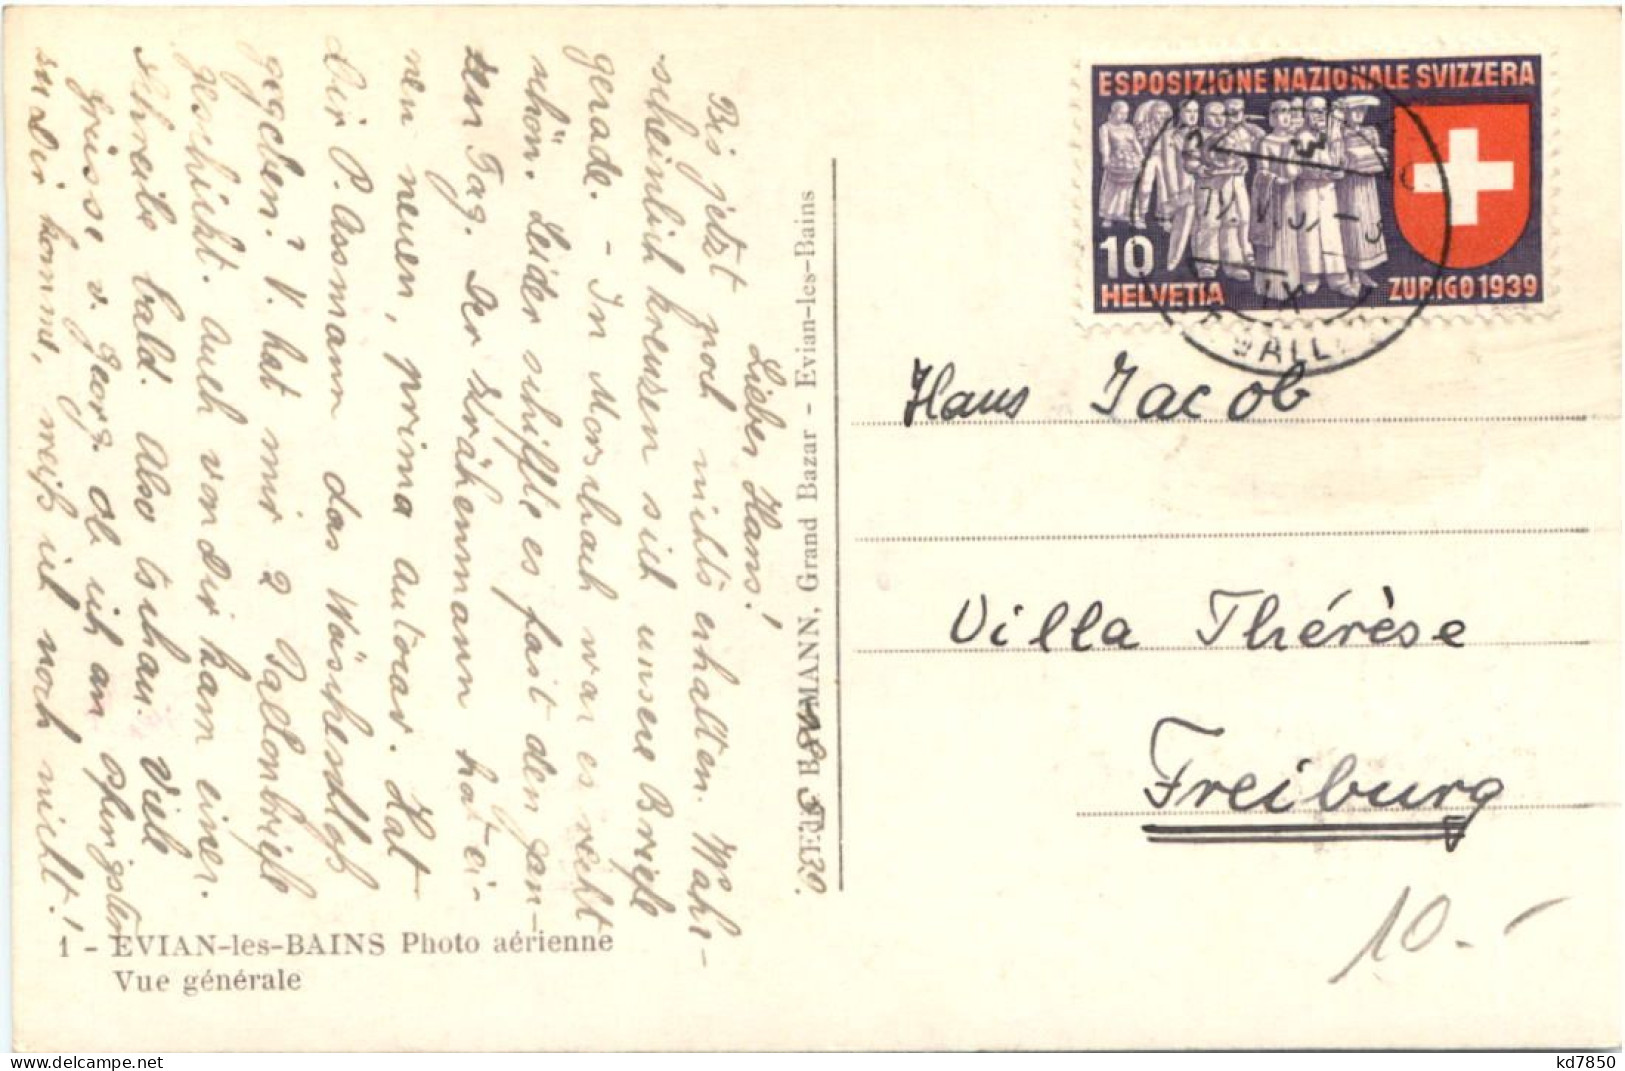 Lieber Hans!
Bis jetzt noch nichts erhalten. Wahr-
scheinlich kreuzen sich unsere Briefe
gerade. - In Morschach war es recht
schön. Leider schiffte es fast den gan-
zen Tag. Der Krähenmann hat ei-
nen neuen, prima Autocar. Hat
Dir P. Assmann das Wäschenschloß
gegeben? V. hat mir 2 Ballonbriefe
geschickt. Auch von Dir kam einer.
Schreibe bald. Also tschau. Viele
Grüsse v. Georg. Ob ich an Pfingsten
zu Dir komme, weiß ich noch nicht!
1 - EVIAN-les-BAINS Photo aérienne
Vue générale
Grand Bazar - Evian-les-Bains
ESPOSIZIONE NAZIONALE SVIZZERA
10
HELVETIA
ZURIGO 1939
Hans Jacob
Villa Thérèse
Freiburg
10.-
kd7850